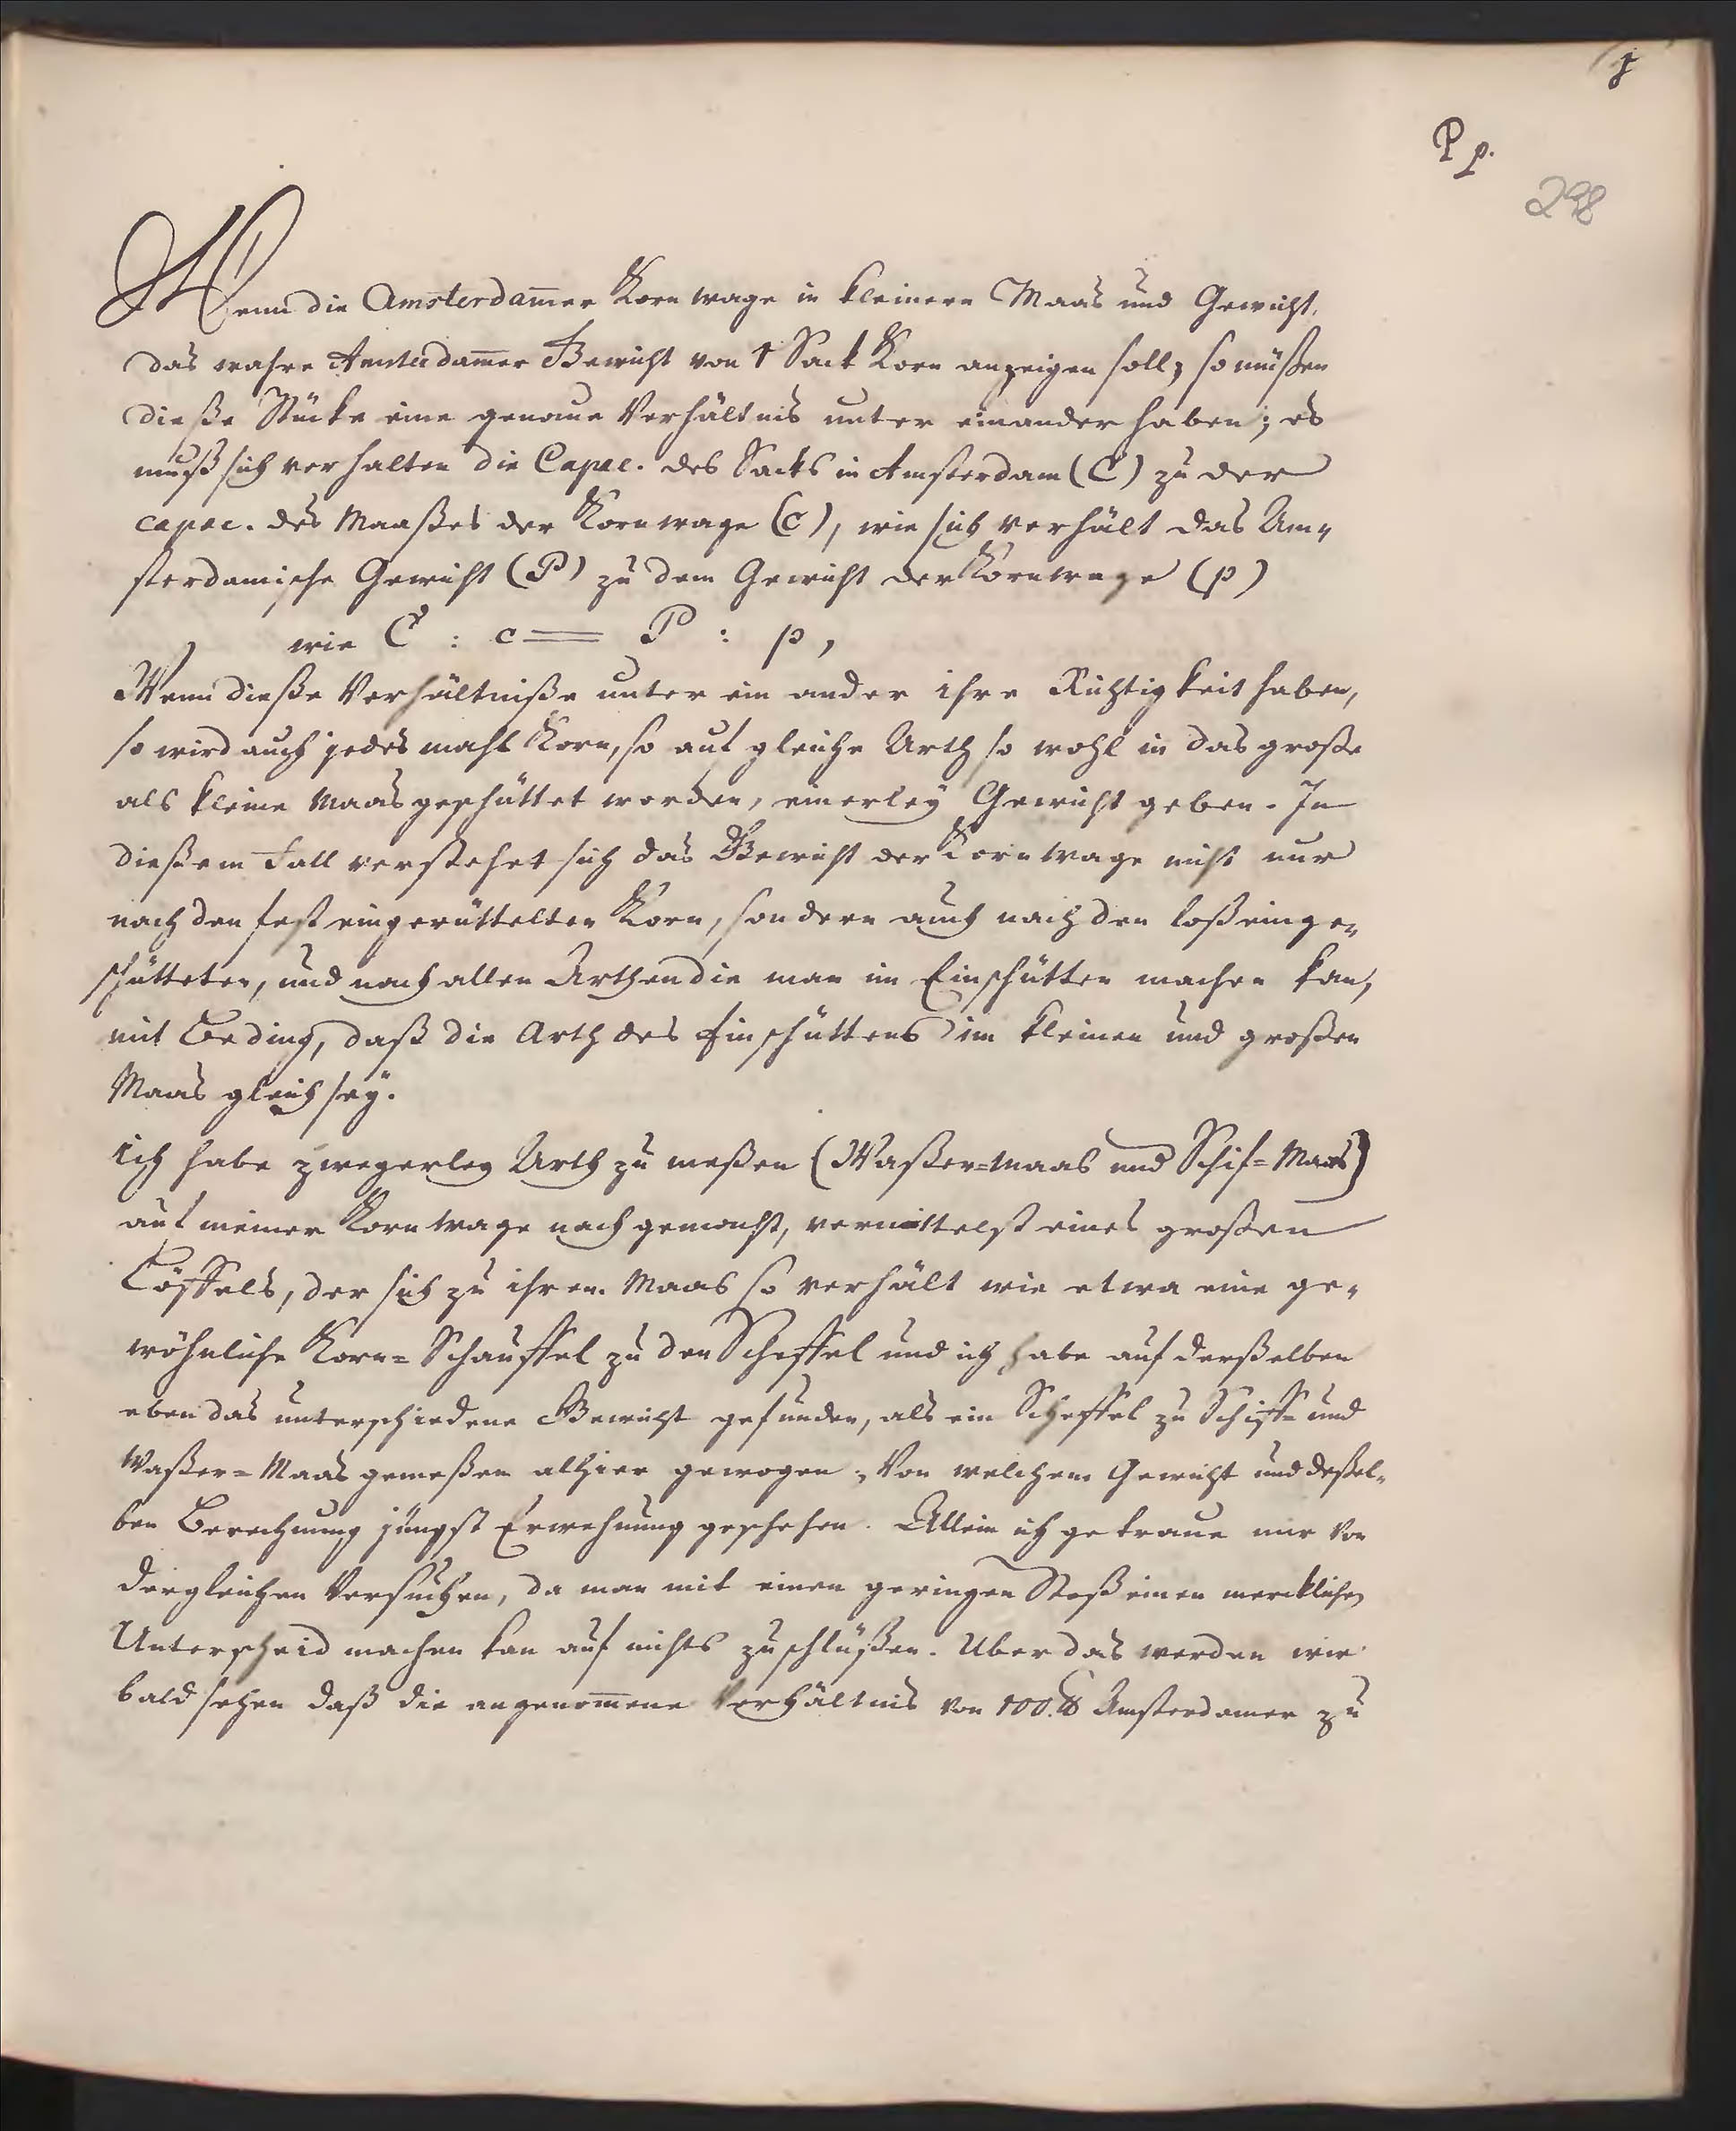 1
P p.
298
Wenn die Amsterdam̄er Kornwage in kleinern Maas und Gewicht,
das wahre Amsterdam̄er Gewicht von 1 Sack Korn anzeigen soll; so müßen
dieße Stücke eine genaue Verhältnis unter einander haben; es
muß sich verhalten die Capac. des Sacks in Amsterdam (C) zu der
capac. des Maaßes der Kornwage (c), wie sich verhält das Am„
sterdamische Gewicht (P) zu dem Gewicht der Kornwage (p)
wie C : c = P : p,
Wenn dieße Verhältniße unter ein ander ihre Richtigkeit haben,
so wird auch jedes mahl Korn, so auf gleiche Arth so wohl in das große
als kleine Maas geschüttet worden, einerley Gewicht geben. In
dießem Fall verstehet sich das Gewicht der Kornwage nicht nur
nach den fest eingerüttelten Korn, sondern auch nach den loß einge„
schütteten, und nach allen Arthen die man im Einschütten machen kan,
mit Beding, daß die Arth des Einschüttens im kleinen und großen
Maas gleich sey.
Ich habe zweyerley Arth zu meßen (Waßer=maas und Schif=Maas)
auf meiner Kornwage nach gemacht, vermittelst eines großen
Löffels, der sich zu ihren Maas so verhält wie etwa eine ge„
wöhnliche Korn=Schauffel zu den Scheffel und ich habe auf derßelben
eben das unterschiedene Gewicht gefunden, als ein Scheffel zu Schiff= und
Waßer=Maas gemeßen alhier gewogen; Von welchem Gewicht und deßel„
ben Berechnung jüngst Erwehnung geschehen. Allein ich getraue mir von
dergleichen Versuchen, da man mit einen geringen Stoß einen mercklichen
Unterscheid machen kan auf nichts zu schlüßen. Uber das werden wir
bald sehen daß die angenom̄ene Verhältnis von 100. ℔ Amsterdamer zu